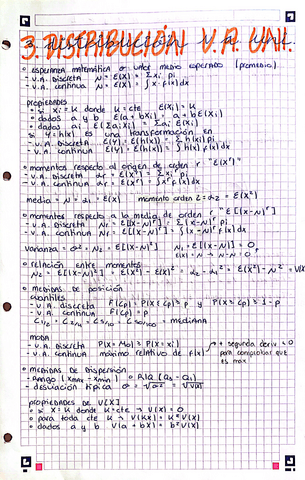 3. DISTRIBUCIÓN V.A. UNI.
o esperanza matemática o valor medio esperado (promedio).
- v.A. discreta N = E(X) = Σxi pi
- v.A. continua N = E(X) = ∫x f(x)dx
propiedades
o si xi = K donde K = cte E(Xi) = K
o dados a y b E(a + bXi) = a + bE(Xi)
o dados ai E(ΣaiXi) = Σai E(Xi)
o si Y = h(X) es una transformación en
- v.A. discreta E(Y) = E(h(x)) = Σh(xi) pi
- v.A. continua E(Y) = E(h(x)) = ∫h(x) f(x) dx
o momentos respecto al origen de orden r "E(X^r)"
- v.A. discreta αr = E(X^r) = Σxi^r pi
- v.A. continua αr = E(X^r) = ∫x^r f(x) dx
media = N = α1 = E(X) momento orden 2 = α2 = E(X²)
o momentos respecto a la media de orden r "E[(X-N)^r]"
- v.A. discreta Nr = E[(X-N)^r] = Σ(xi-N)^r pi
- v.A. continua Nr = E[(X-N)^r] = ∫(x-N)^r f(x)dx
varianza = σ² = N2 = E[(X-N)²] N1 = E[(X-N)] = 0,
E(X) - N = N - N = 0
o relación entre momentos
N2 = E[(X-N)²] = E(X²) - E(X)² = α2 - α1² = E(X²) - N² = V(X)
o medidas de posición
cuantiles
- v.A. discreta F(Cp) = P(X ≤ Cp) ≥ p y P(X ≥ Cp) ≥ 1-p
- v.A. continua F(Cp) = p
C1/2 = C2/4 = C5/10 = C50/100 = mediana
moda
- v.A. discreta P(X = Mo) ≥ P(X = xi)
- v.A. continua máximo relativo de f(x)
→ + segunda deriv < 0
para comprobar que
es max
o medidas de dispersión
- Rango (xmax - xmin) o RIQ (Q3 - Q1)
- desviación típica σ = √σ² = √V(X)
propiedades de V(X)
o si X = K donde K = cte → V(X) = 0
o para toda cte K → V(KX) = K² V(X)
o dados a y b V(a + bX) = b² V(X)